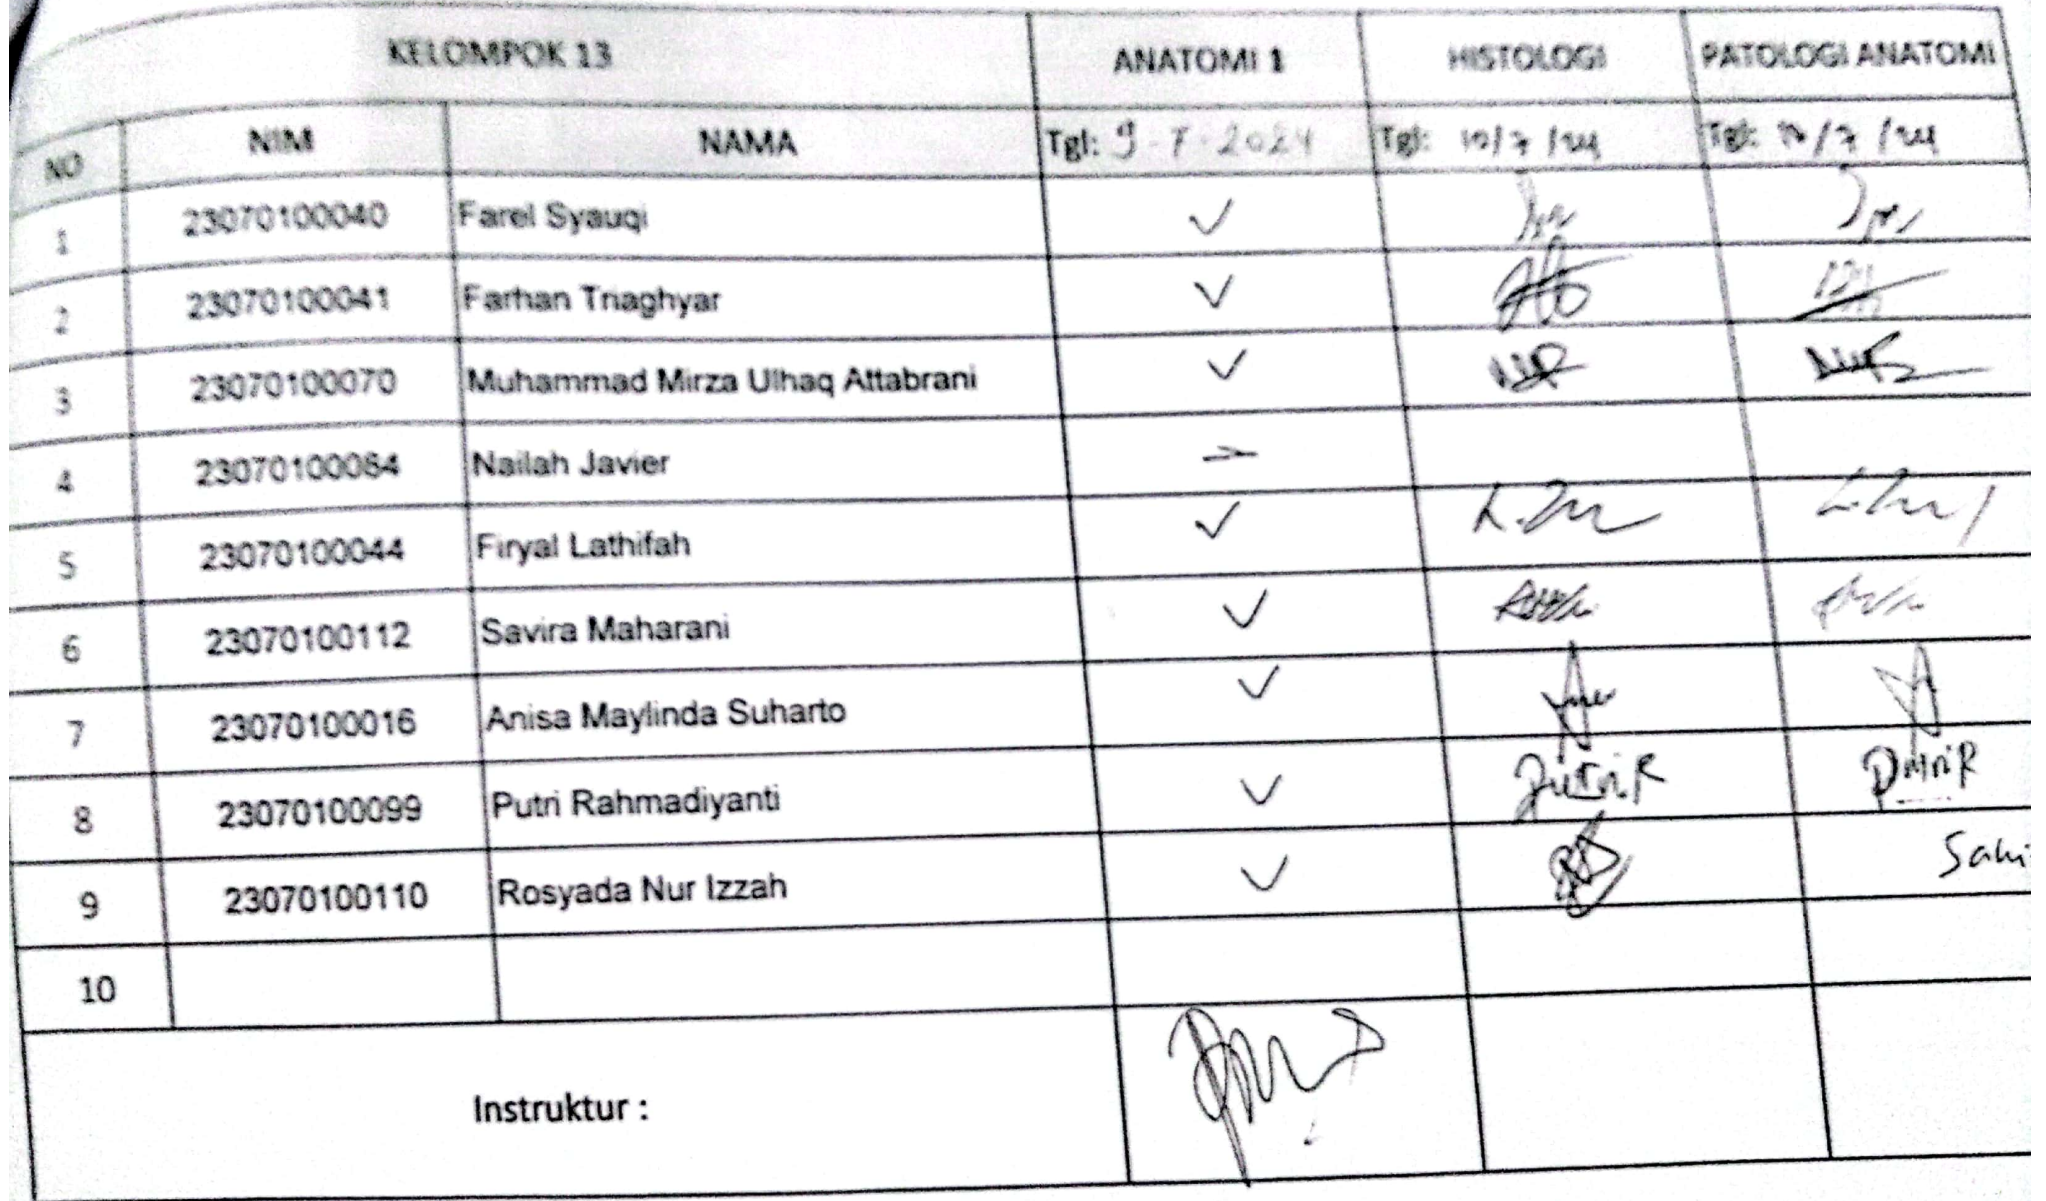 KELOMPOK 13 ANATOMI 1 HISTOLOGI PATOLOGI ANATOMI
NO NIM NAMA Tgl: 9-7-2024 Tgl: 10/7/24 Tgl: 10/7/24
1 23070100040 Farel Syauqi ✓
2 23070100041 Farhan Triaghyar ✓
3 23070100070 Muhammad Mirza Ulhaq Attabrani ✓
4 23070100084 Nailah Javier
5 23070100044 Firyal Lathifah ✓
6 23070100112 Savira Maharani ✓
7 23070100016 Anisa Maylinda Suharto ✓
8 23070100099 Putri Rahmadiyanti ✓ Putri R Putri R
9 23070100110 Rosyada Nur Izzah ✓
10
Instruktur :